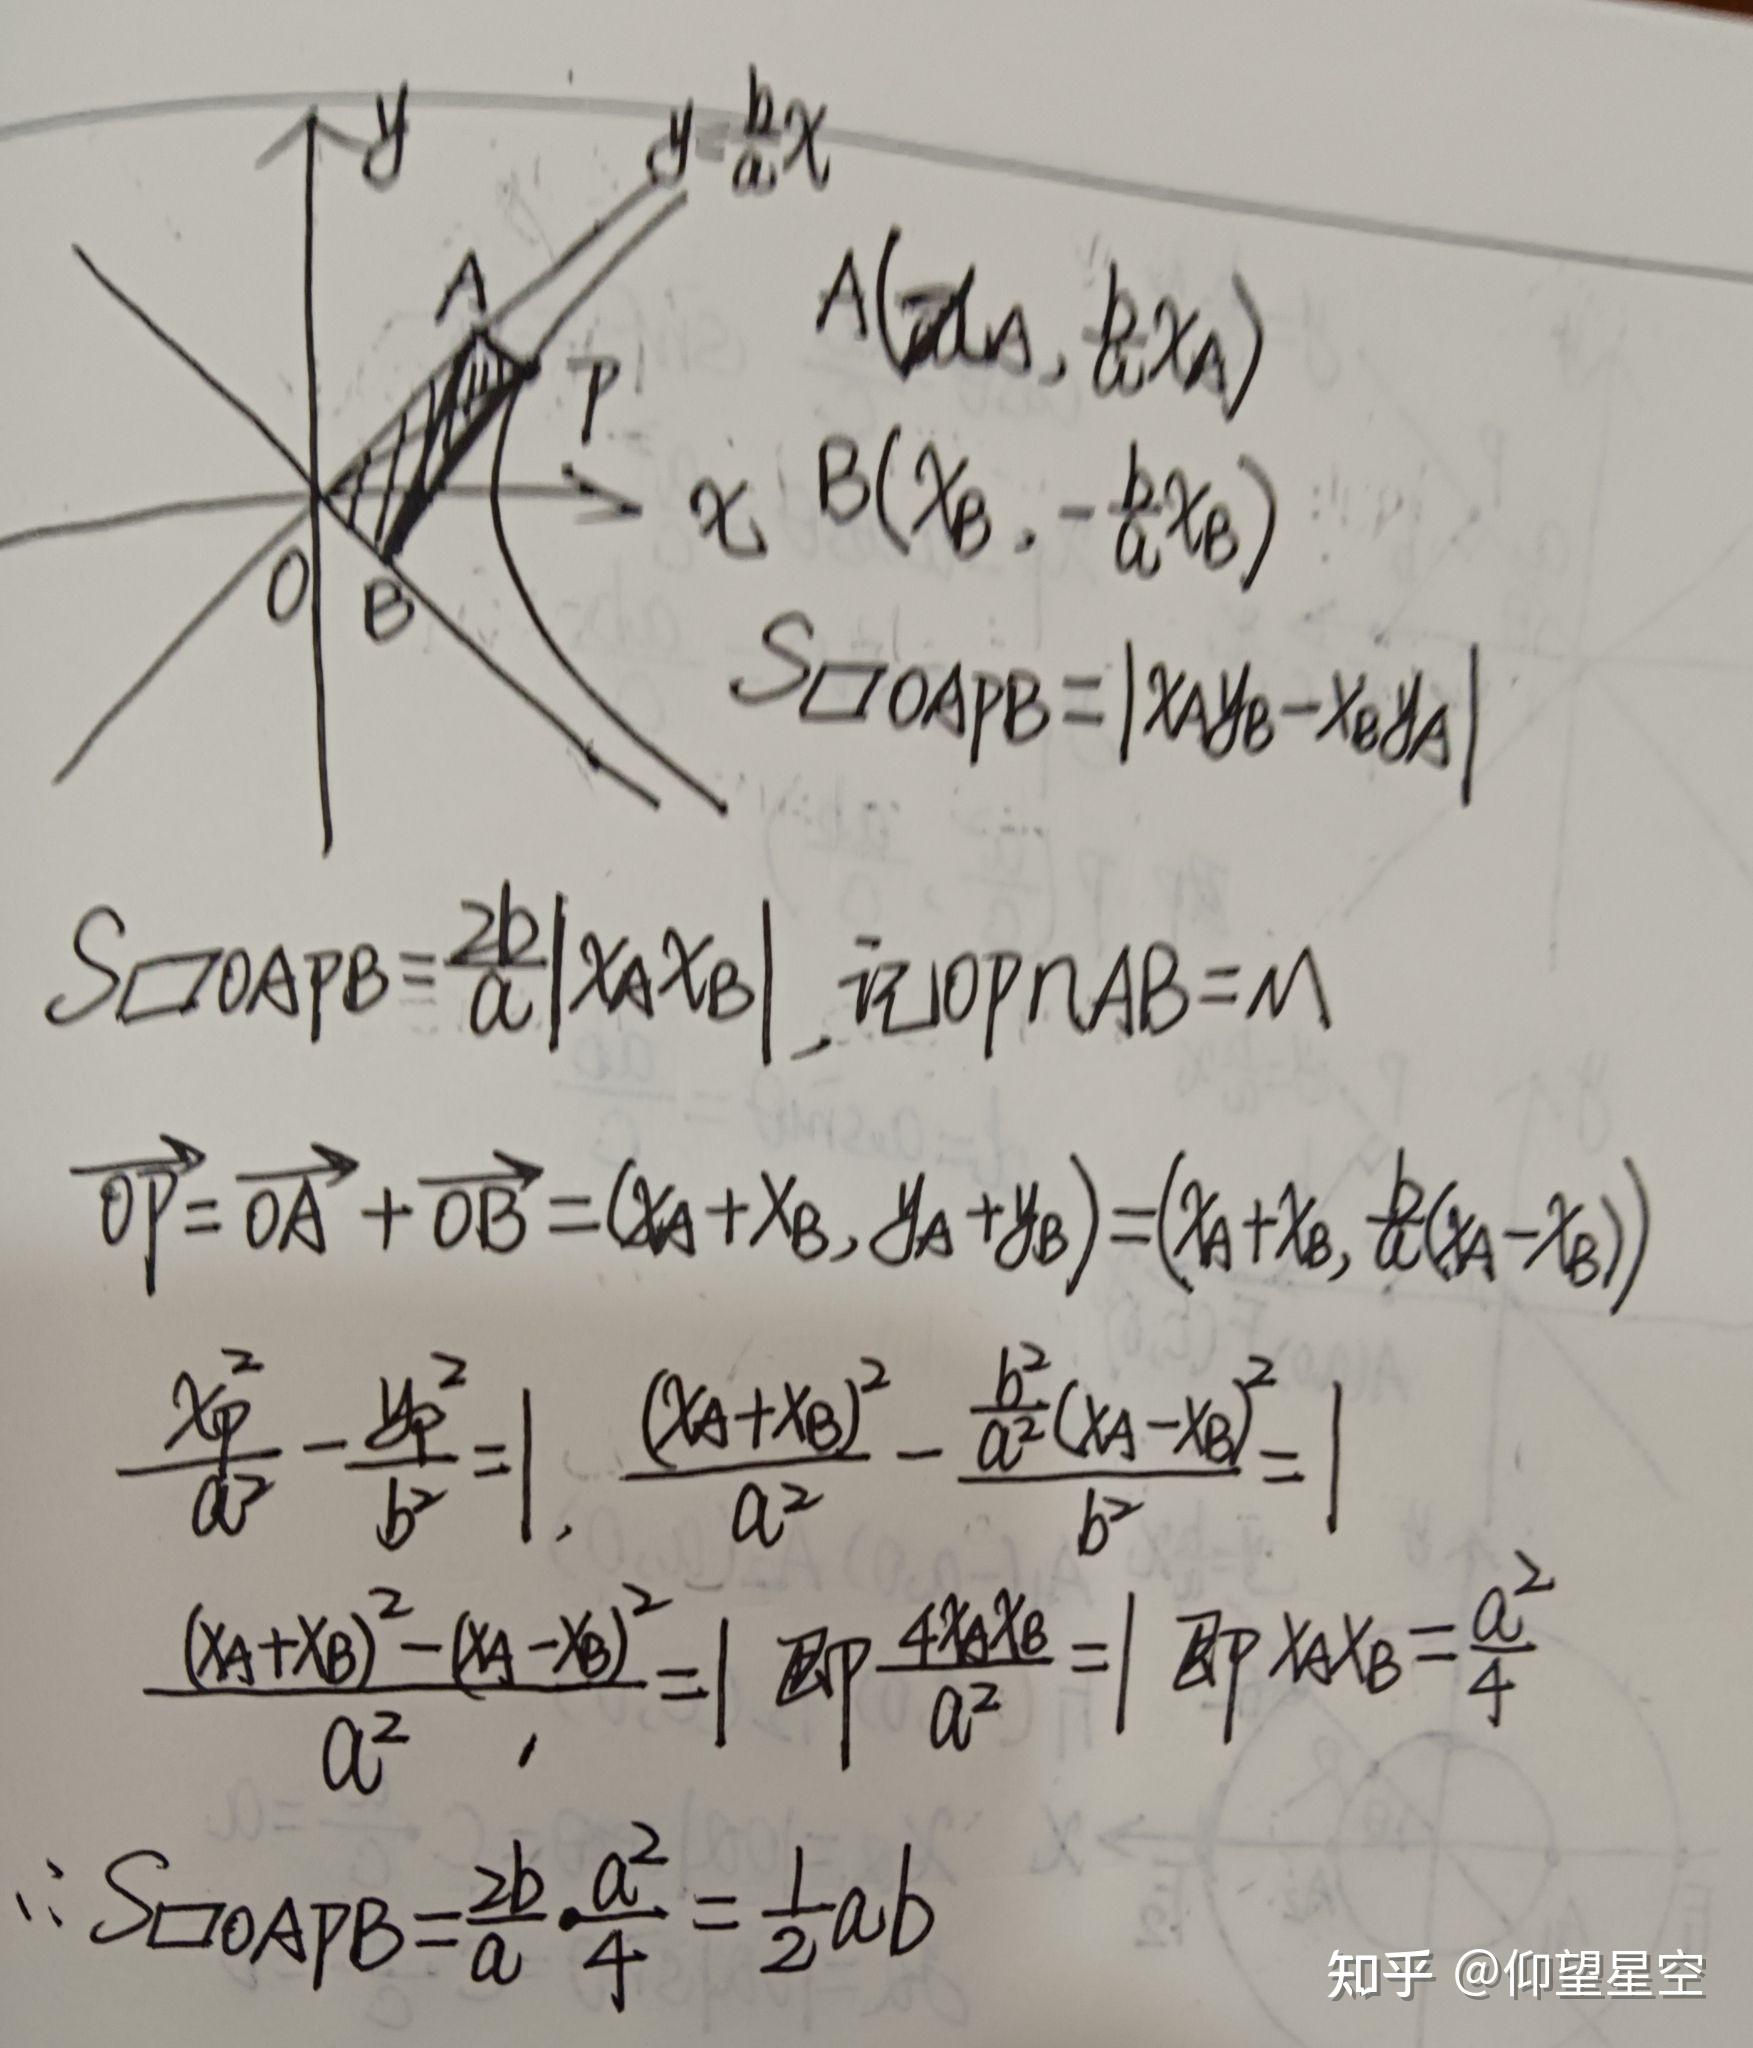 y
y=b/a x
A
P
x
O
B
A(x_A, b/a x_A)
B(x_B, -b/a x_B)
S▱OAPB=|x_Ay_B-x_By_A|
S▱OAPB=2b/a|x_Ax_B|, 记OP∩AB=M
→OP=→OA+→OB=(x_A+x_B, y_A+y_B)=(x_A+x_B, b/a(x_A-x_B))
x_P²/a²-y_P²/b²=1, (x_A+x_B)²/a²-b²/a²(x_A-x_B)²/b²=1
((x_A+x_B)²-(x_A-x_B)²)/a²=1, 即4x_Ax_B/a²=1即x_Ax_B=a²/4
∴S▱OAPB=2b/a·a²/4=1/2ab
知乎 @仰望星空